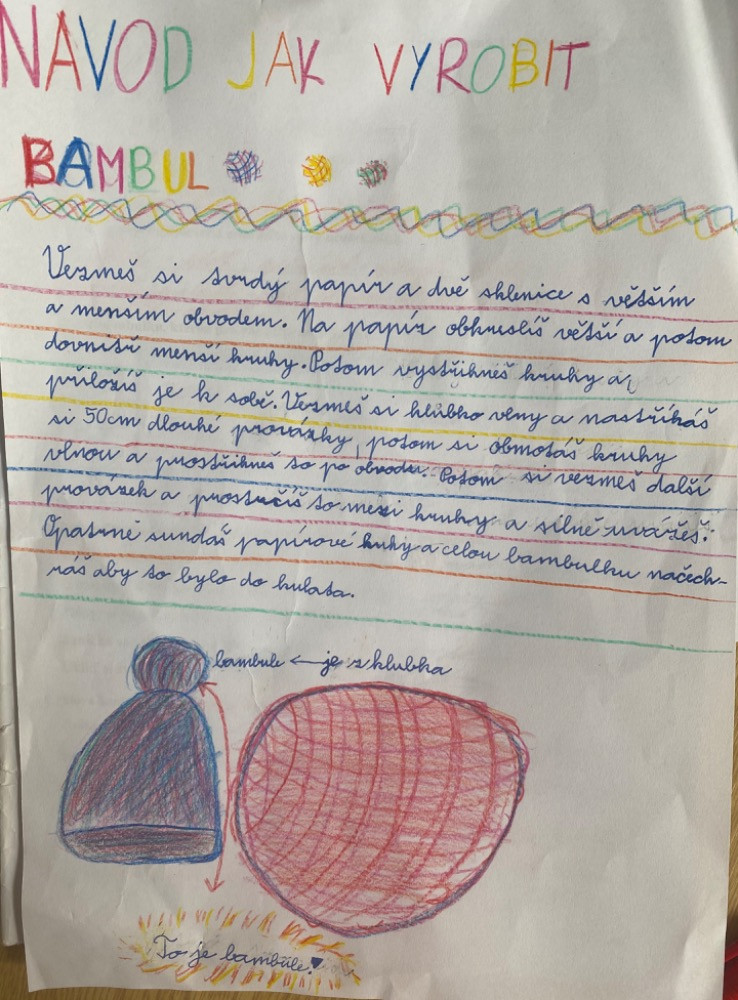 NÁVOD JAK VYROBIT
BAMBUL
Vezmeš si tvrdý papír a dvě sklenice s větším
a menším obvodem. Na papír obkreslíš větší a potom
dovnitř menší kruhy. Potom vystřihneš kruhy a
přiložíš je k sobě. Vezmeš si klubko vlny a nastříháš
si 50cm dlouhé provázky, potom si obmotáš kruhy
vlnou a prostřihneš to po obvodu. Potom si vezmeš další
provázek a prostrčíš to mezi kruhy a silně uvážeš.
Opatrně sundáš papírové kruhy a celou bambulku načech-
ráš aby to bylo do kulata.
bambule ← je z klubka
To je bambule!